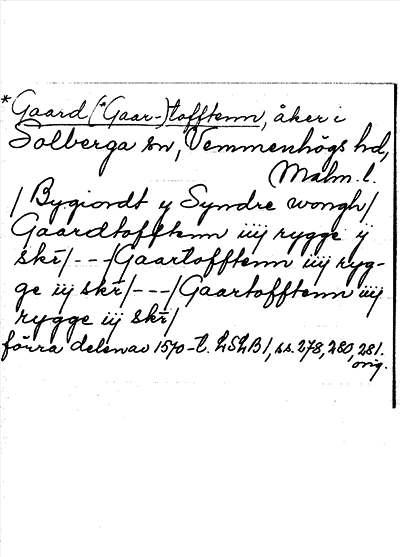 *Gaard (*Gaar-)tofftenn, åker i
Solberga sn, Vemmenhögs hd,
Malm. l.
/ Bygiordt y Syndre wongh /
Gaardtofftenn iiij rygge ij
skr̄ / - - - / Gaartofftenn iiij ryg-
ge iij skr̄ / - - - / Gaartofftenn iiij
rygge iij skr̄ /
förra delen av 1570-t. LSLB 1, ss. 278, 280, 281.
orig.